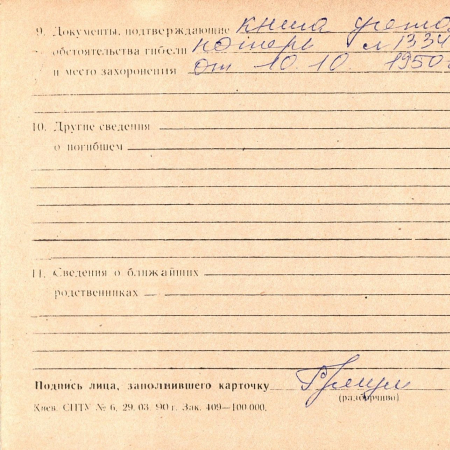 9. Документы, подтверждающие книга учета
обстоятельства гибели потерь л 1334
и место захоронения от 10.10.1950г
10. Другие сведения
о погибшем
11. Сведения о ближайших
родственниках
Подпись лица, заполнившего карточку
(разборчиво)
Киев. СПТУ № 6. 29. 03. 90 г. Зак. 409—100 000.